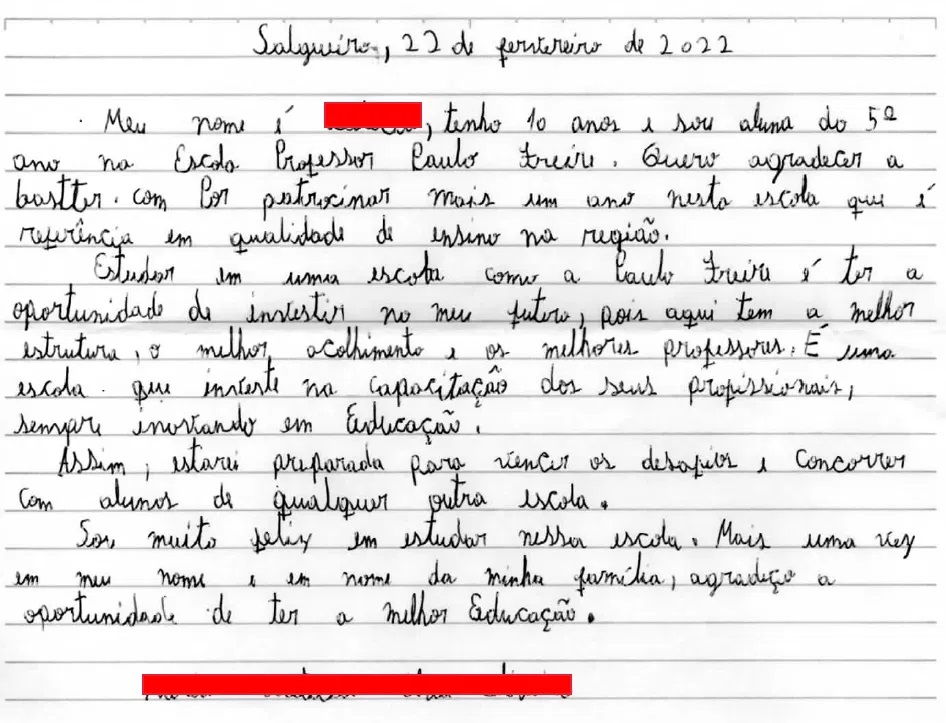 Salgueiro, 22 de fervereiro de 2022
Meu nome é , tenho 10 anos e sou aluna do 5º
ano na Escola Professor Paulo Freire. Quero agradecer a
bastter.com Por patrocinar mais um ano nesta escola que é
referência em qualidade de ensino na região.
Estudar em uma escola como a Paulo Freire é ter a
oportunidade de investir no meu futuro, pois aqui tem a melhor
estrutura, o melhor acolhimento e os melhores professores. É uma
escola que investe na capacitação dos seus profissionais,
sempre inovando em Educação.
Assim, estarei preparada para vencer os desafios e concorrer
com alunos de qualquer outra escola.
Sou muito feliz em estudar nessa escola. Mais uma vez
em meu nome e em nome da minha família, agradeço a
oportunidade de ter a melhor Educação.